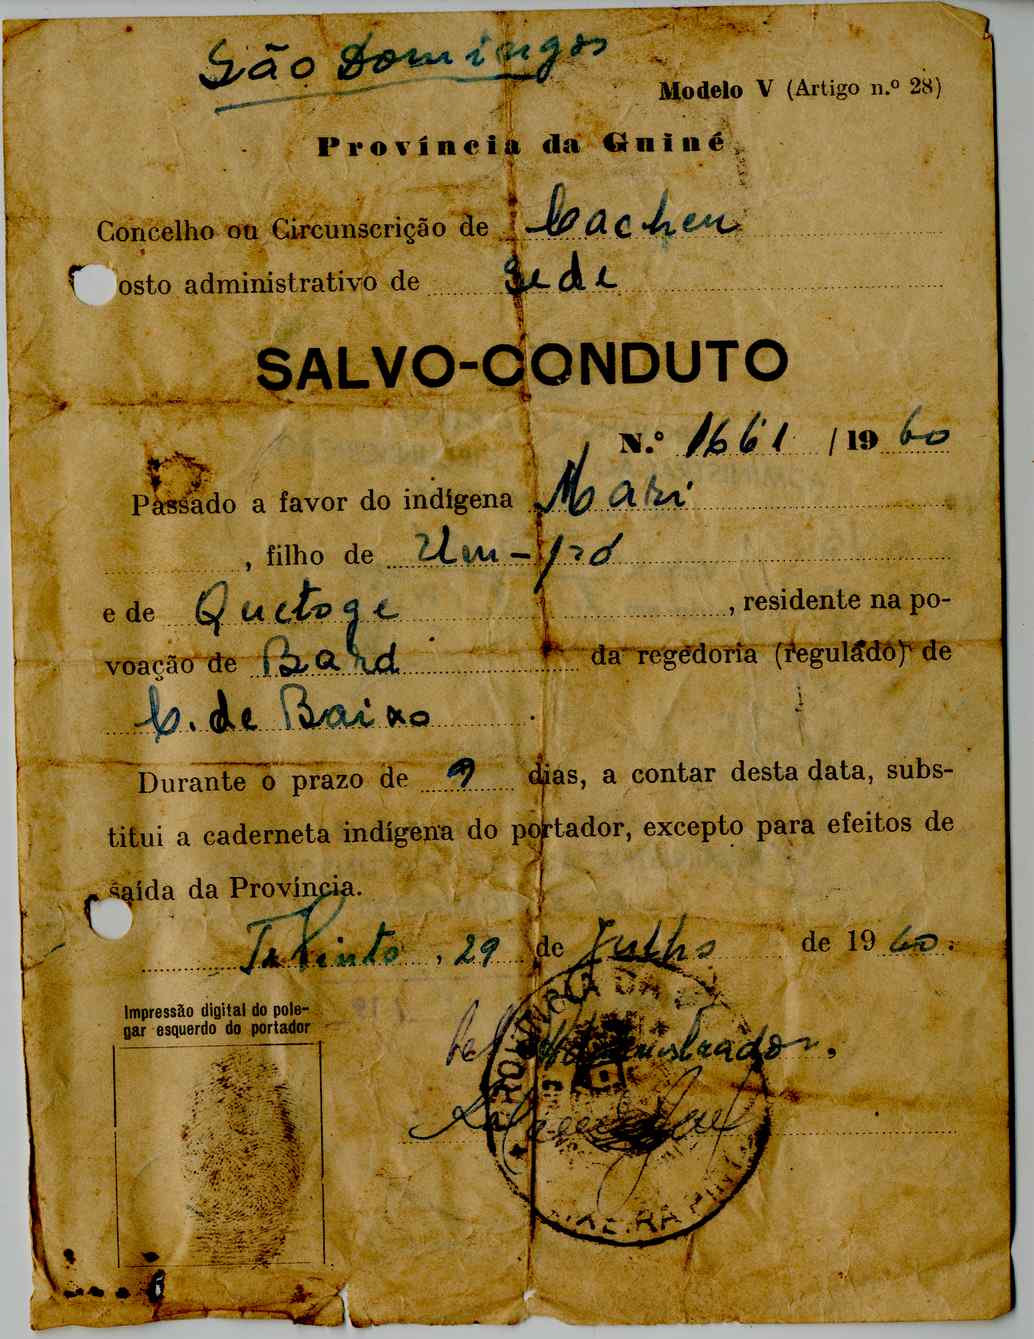 São Domingos
Modelo V (Artigo n.º 28)
Província da Guiné
Concelho ou Circunscrição de Cacheu
osto administrativo de Sede
SALVO-CONDUTO
N.º 1661 / 19 60
Passado a favor do indígena Mari
, filho de Um-pó
e de Quetoge , residente na po-
voação de Bard da regedoria (regulado) de
C. de Baixo .
Durante o prazo de 9 dias, a contar desta data, subs-
titui a caderneta indígena do portador, excepto para efeitos de
saída da Província.
T. Pinto , 29 de Julho de 19 60.
Impressão digital do pole-
gar esquerdo do portador
Administrador,
PROVÍNCIA DA
TEIXEIRA PINTO